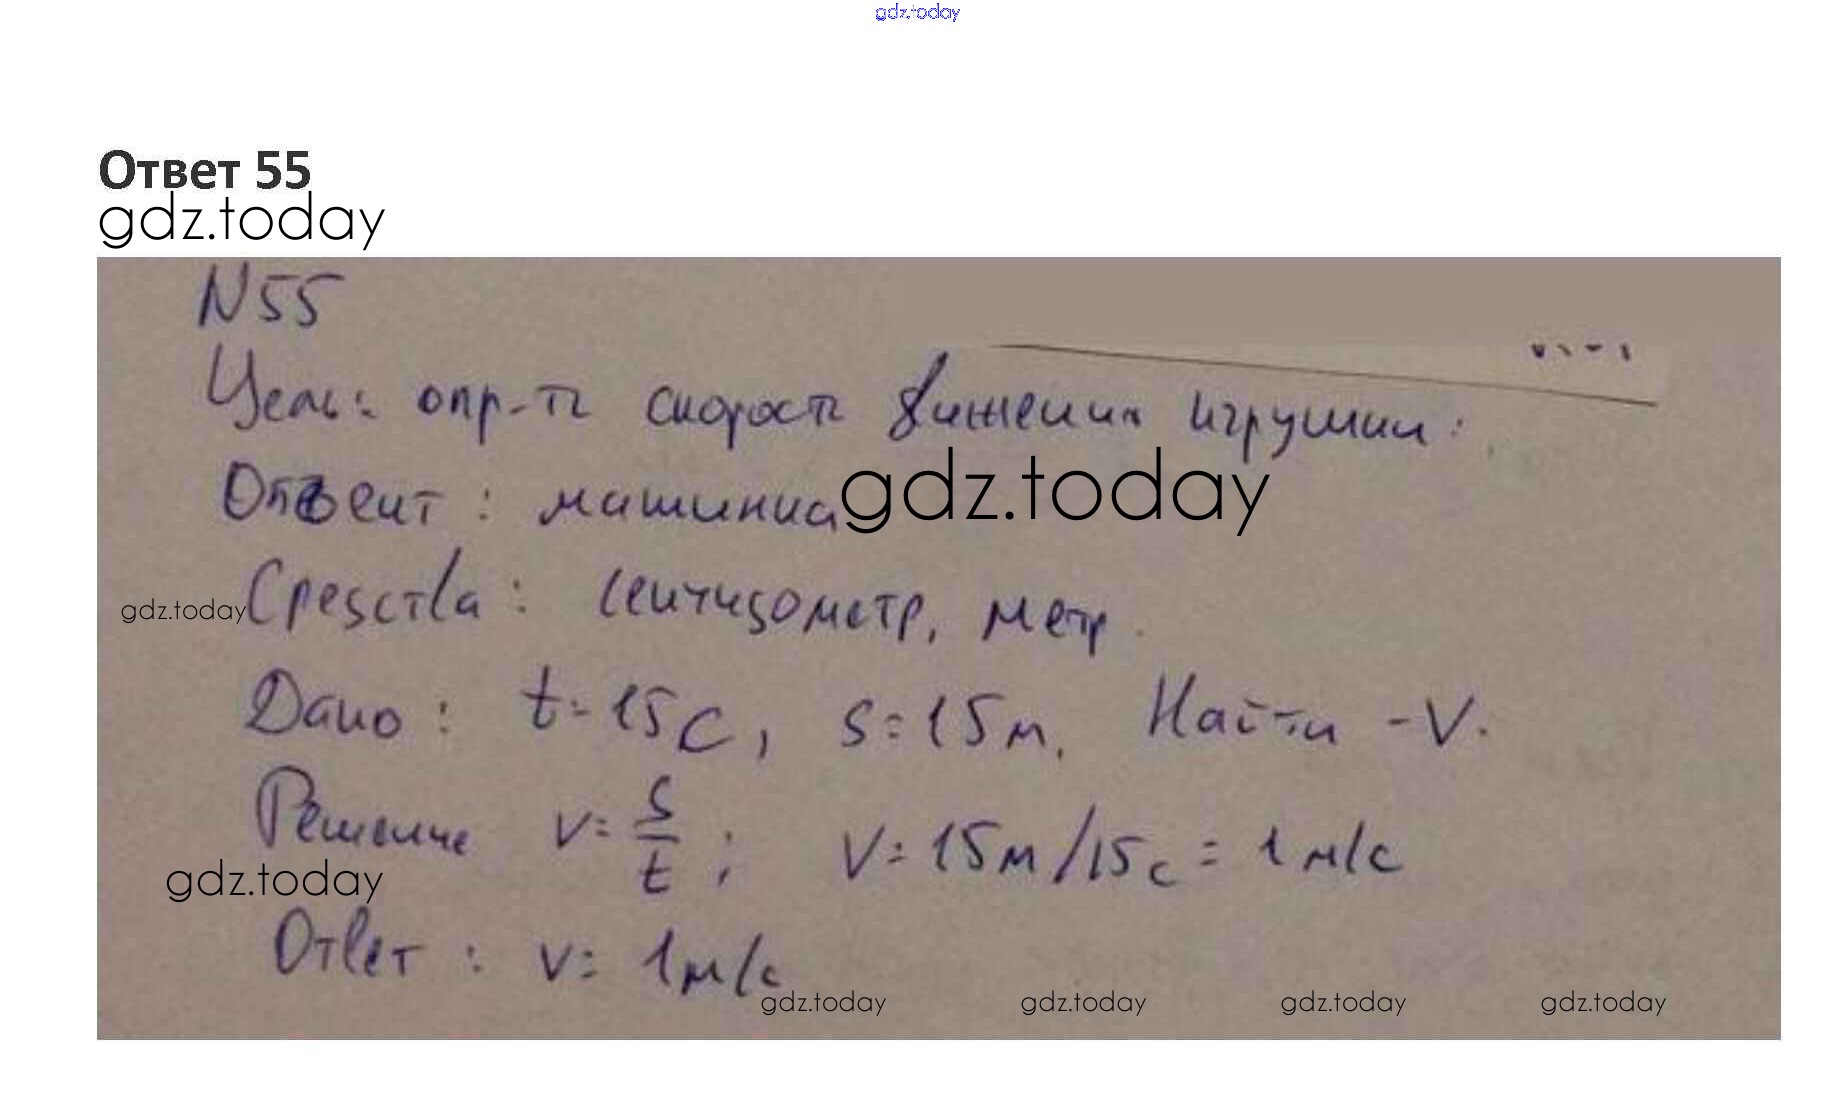 gdz.today
Ответ 55
gdz.today
N55
Цель: опр-ть скорость движения игрушки:
Объект : машинка gdz.today
gdz.today Средства : сантиметр, метр.
Дано : t=15с, s=15м. Найти -V.
Решение v=s/t ; V=15м/15с = 1 м/с
gdz.today
Ответ : v= 1м/с
gdz.today gdz.today gdz.today gdz.today